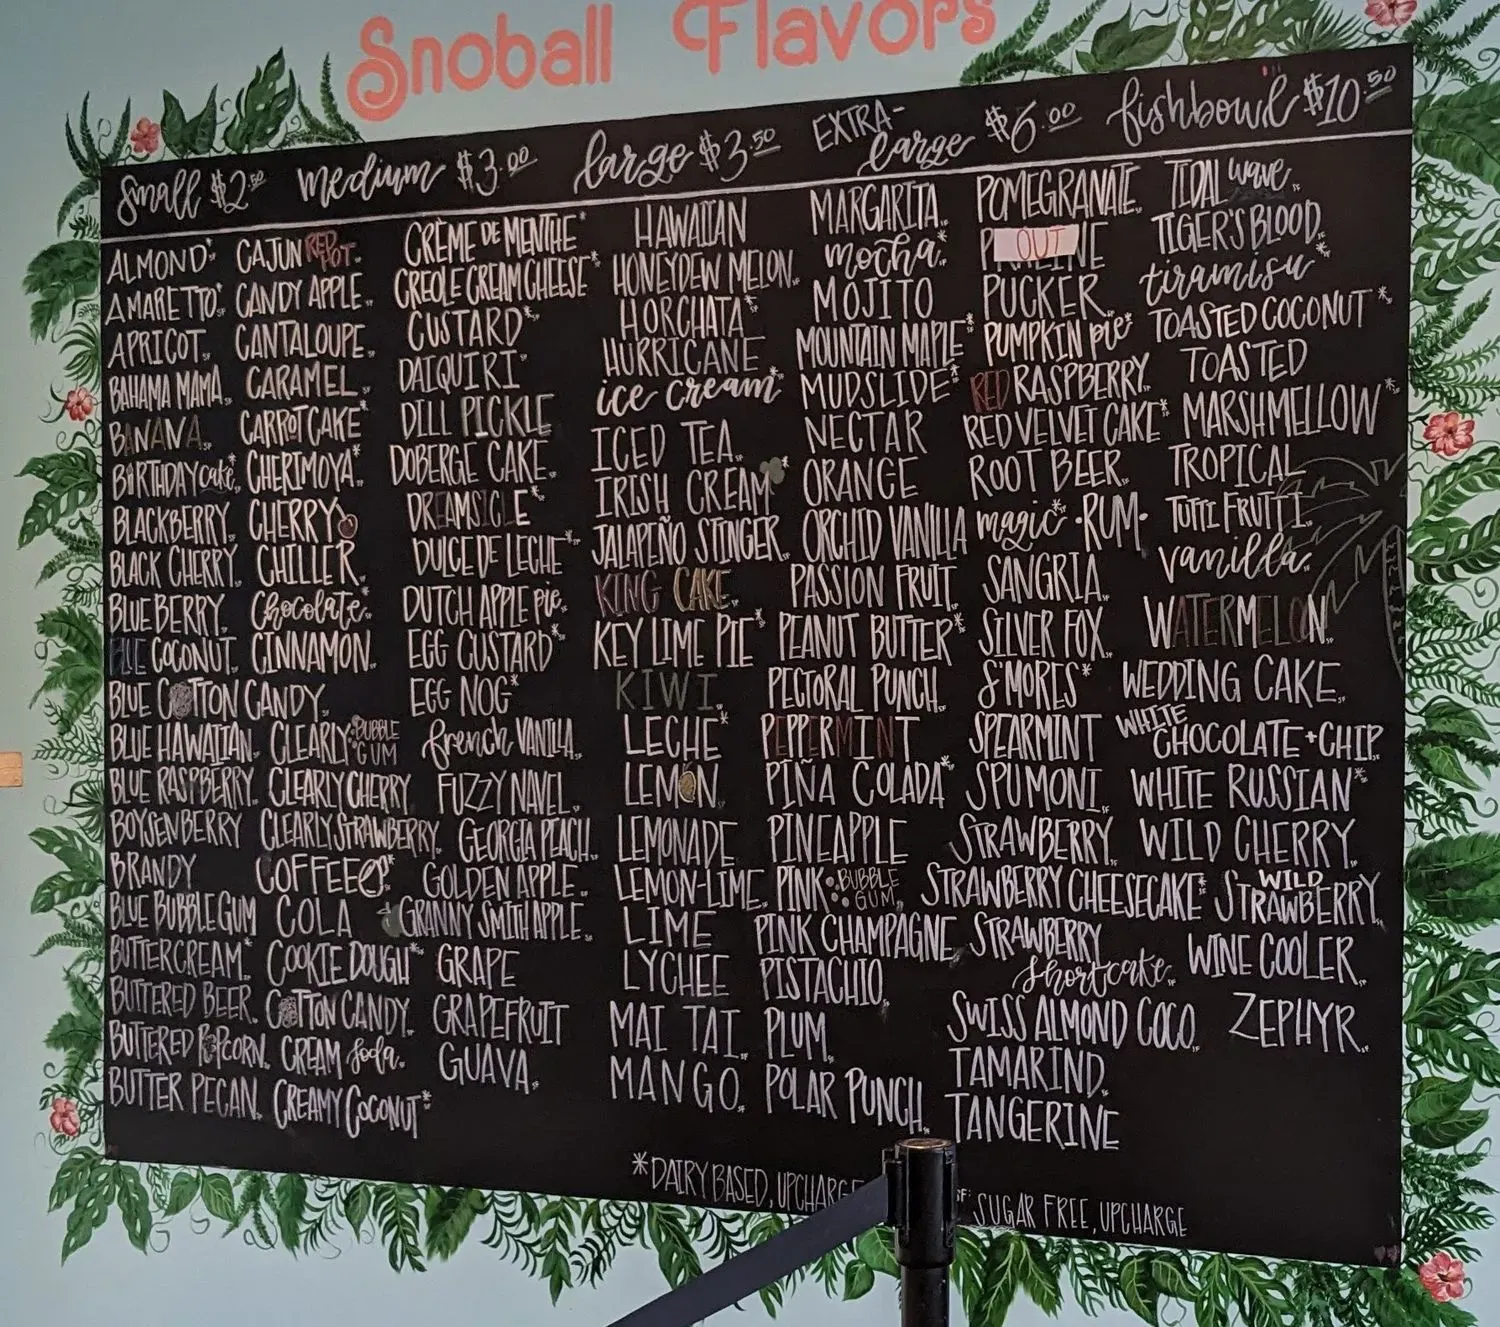 Snoball Flavors
small $2.50 medium $3.00 large $3.50 EXTRA-large $6.00 fishbowl $10.50
ALMOND*
AMARETTO* SF
APRICOT SF
BAHAMA MAMA SF
BANANA SF
BIRTHDAY cake* SF
BLACKBERRY SF
BLACK CHERRY SF
BLUEBERRY SF
BLUE COCONUT SF
BLUE COTTON CANDY SF
BLUE HAWAIIAN SF
BLUE RASPBERRY SF
BOYSENBERRY
BRANDY
BLUE BUBBLEGUM
BUTTERCREAM* SF
BUTTERED BEER SF
BUTTERED POPCORN SF
BUTTER PECAN SF
CAJUN RED HOT SF
CANDY APPLE SF
CANTALOUPE SF
CARAMEL SF
CARROT CAKE*
CHERIMOYA* SF
CHERRY
CHILLER SF
Chocolate* SF
CINNAMON SF
CLEARLY BUBBLE GUM
CLEARLY CHERRY
CLEARLY STRAWBERRY SF
COFFEE*
COLA
COOKIE DOUGH*
COTTON CANDY SF
CREAM soda SF
CREAMY COCONUT* SF
CRÈME DE MENTHE*
CREOLE CREAM CHEESE* SF
CUSTARD* SF
DAIQUIRI SF
DILL PICKLE
DOBERGE CAKE SF
DREAMSICLE* SF
DULCE DE LECHE* SF
DUTCH APPLE pie SF
EGG CUSTARD* SF
EGG NOG* SF
french VANILLA SF
FUZZY NAVEL SF
GEORGIA PEACH SF
GOLDEN APPLE SF
GRANNY SMITH APPLE SF
GRAPE
GRAPEFRUIT
GUAVA SF
HAWAIIAN
HONEYDEW MELON SF
HORCHATA* SF
HURRICANE
ice cream* SF
ICED TEA SF
IRISH CREAM* SF
JALAPEÑO STINGER SF
KING CAKE SF
KEY LIME PIE* SF
KIWI SF
LECHE*
LEMON SF
LEMONADE
LEMON-LIME SF
LIME
LYCHEE
MAI TAI SF
MANGO SF
MARGARITA SF
mocha* SF
MOJITO
MOUNTAIN MAPLE* SF
MUDSLIDE* SF
NECTAR
ORANGE
ORCHID VANILLA
PASSION FRUIT SF
PEANUT BUTTER* SF
PECTORAL PUNCH SF
PEPPERMINT
PIÑA COLADA* SF
PINEAPPLE
PINK BUBBLE GUM SF
PINK CHAMPAGNE SF
PISTACHIO SF
PLUM SF
POLAR PUNCH SF
POMEGRANATE SF
OUT
PUCKER SF
PUMPKIN pie* SF
RED RASPBERRY SF
RED VELVET CAKE* SF
ROOT BEER SF
magic* RUM
SANGRIA SF
SILVER FOX SF
S'MORES* SF
SPEARMINT
SPUMONI SF
STRAWBERRY SF
STRAWBERRY CHEESECAKE* SF
STRAWBERRY
shortcake SF
SWISS ALMOND COCO SF
TAMARIND SF
TANGERINE
TIDAL wave SF
TIGER'S BLOOD SF
tiramisu* SF
TOASTED COCONUT* SF
TOASTED
MARSHMELLOW* SF
TROPICAL
TUTTI FRUTTI SF
vanilla SF
WATERMELON SF
WEDDING CAKE SF
WHITE CHOCOLATE + CHIP SF
WHITE RUSSIAN*
WILD CHERRY SF
WILD STRAWBERRY SF
WINE COOLER SF
ZEPHYR SF
*DAIRY BASED, UPCHARGE
SF: SUGAR FREE, UPCHARGE